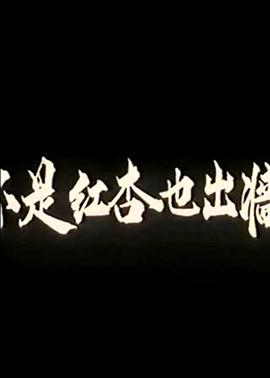 不是红杏也出墙